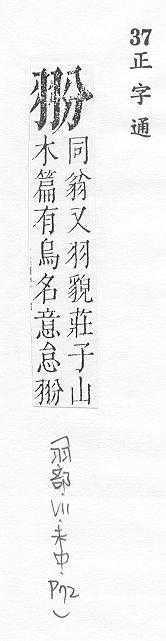 37
正字通
翂
同翁又羽貌莊子山
木篇有鳥名意怠翂
(羽部·VII·未中·P72)